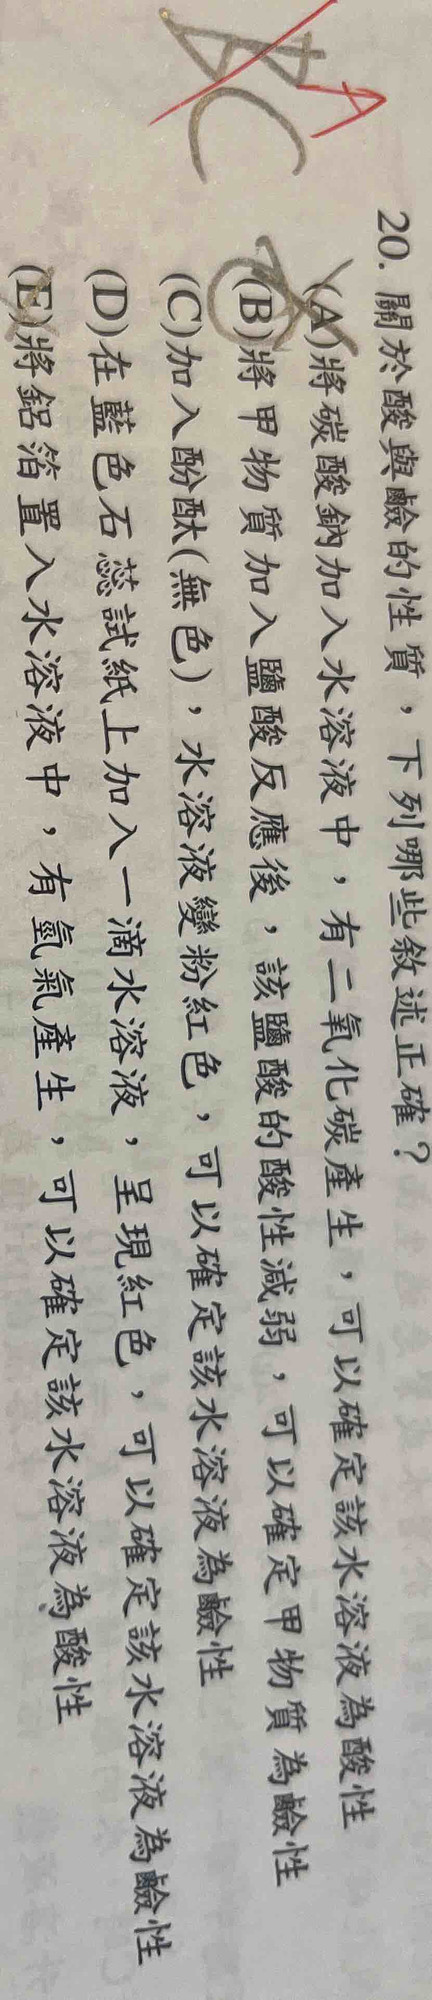 AC
A
20. 關於酸與鹼的性質，下列哪些敘述正確？
(A)將碳酸鈉加入水溶液中，有二氧化碳產生，可以確定該水溶液為酸性
(B)將甲物質加入鹽酸反應後，該鹽酸的酸性減弱，可以確定甲物質為鹼性
(C)加入酚酞(無色)，水溶液變粉紅色，可以確定該水溶液為鹼性
(D)在藍色石蕊試紙上加入一滴水溶液，呈現紅色，可以確定該水溶液為鹼性
(E)將鋁箔置入水溶液中，有氫氣產生，可以確定該水溶液為酸性